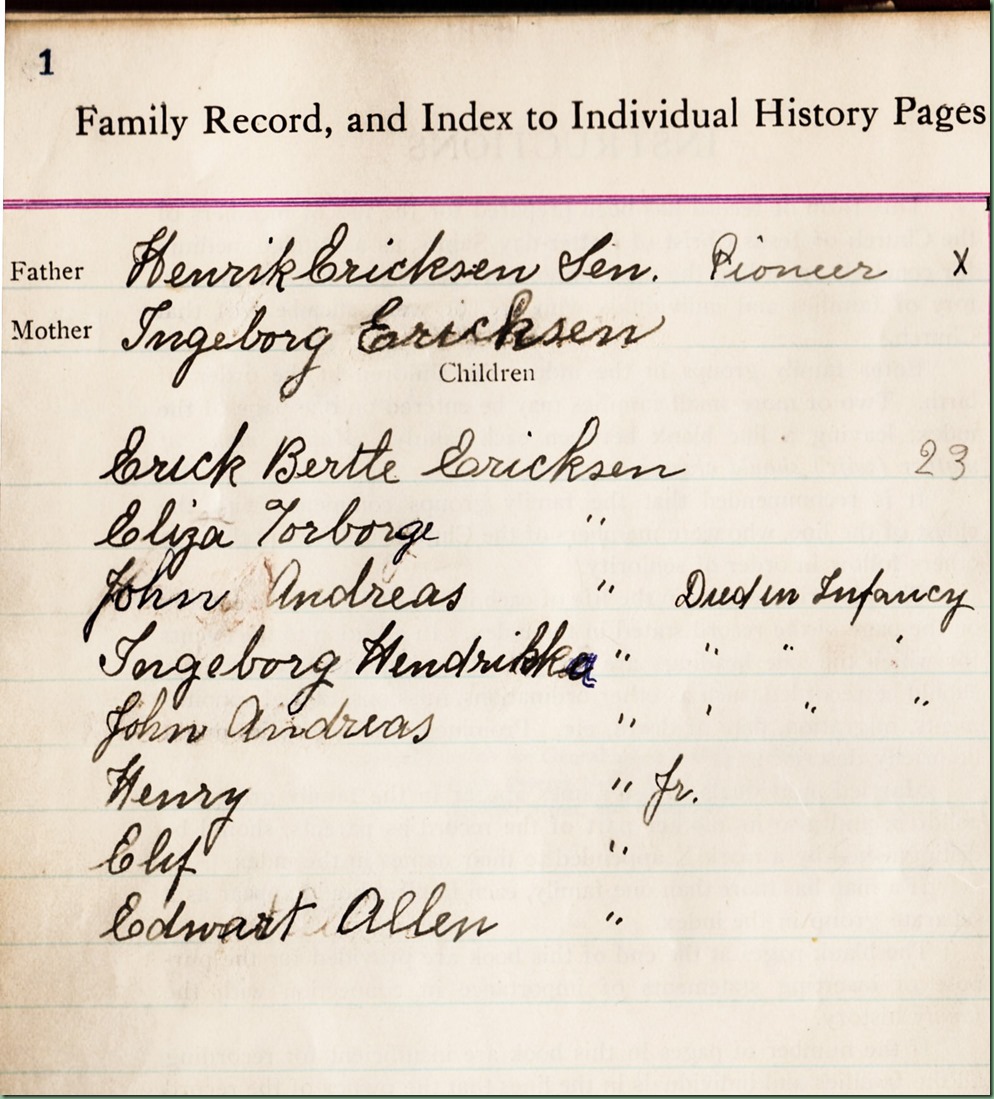 1
Family Record, and Index to Individual History Pages
Father Henrik Ericksen Sen. Pioneer X
Mother Ingeborg Ericksen
Children
Erick Bertte Ericksen 23
Eliza Torborge "
John Andreas " Died in Infancy
Ingeborg Hendrikka " " " "
John Andreas " " " "
Henry " Jr.
Elif "
Edwart Allen "